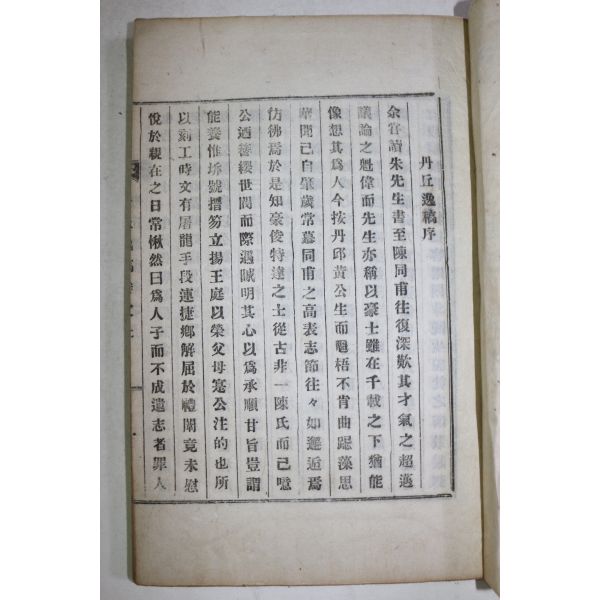 丹丘逸稿序
余嘗讀朱先生書至陳同甫往復深歎其才氣之超邁
議論之魁偉而先生亦稱以豪士雖在千載之下猶能
像想其爲人今按丹邱黃公生而魁梧不肯曲跽藻思
華聞已自肇歲常慕同甫之高表志節往々如邂逅焉
彷彿焉於是知豪俊特達之士從古非一陳氏而已噫
公遒簪纓世閥而際遇晠明其心以爲承順甘旨豈謂
能養惟斾號搢笏立揚王庭以榮父母寔公注的也所
以剗工時文有屠龍手段連捷鄉解屈於禮闈竟未慰
悅於親在之日常愀然曰爲人子而不成遺志者罪人